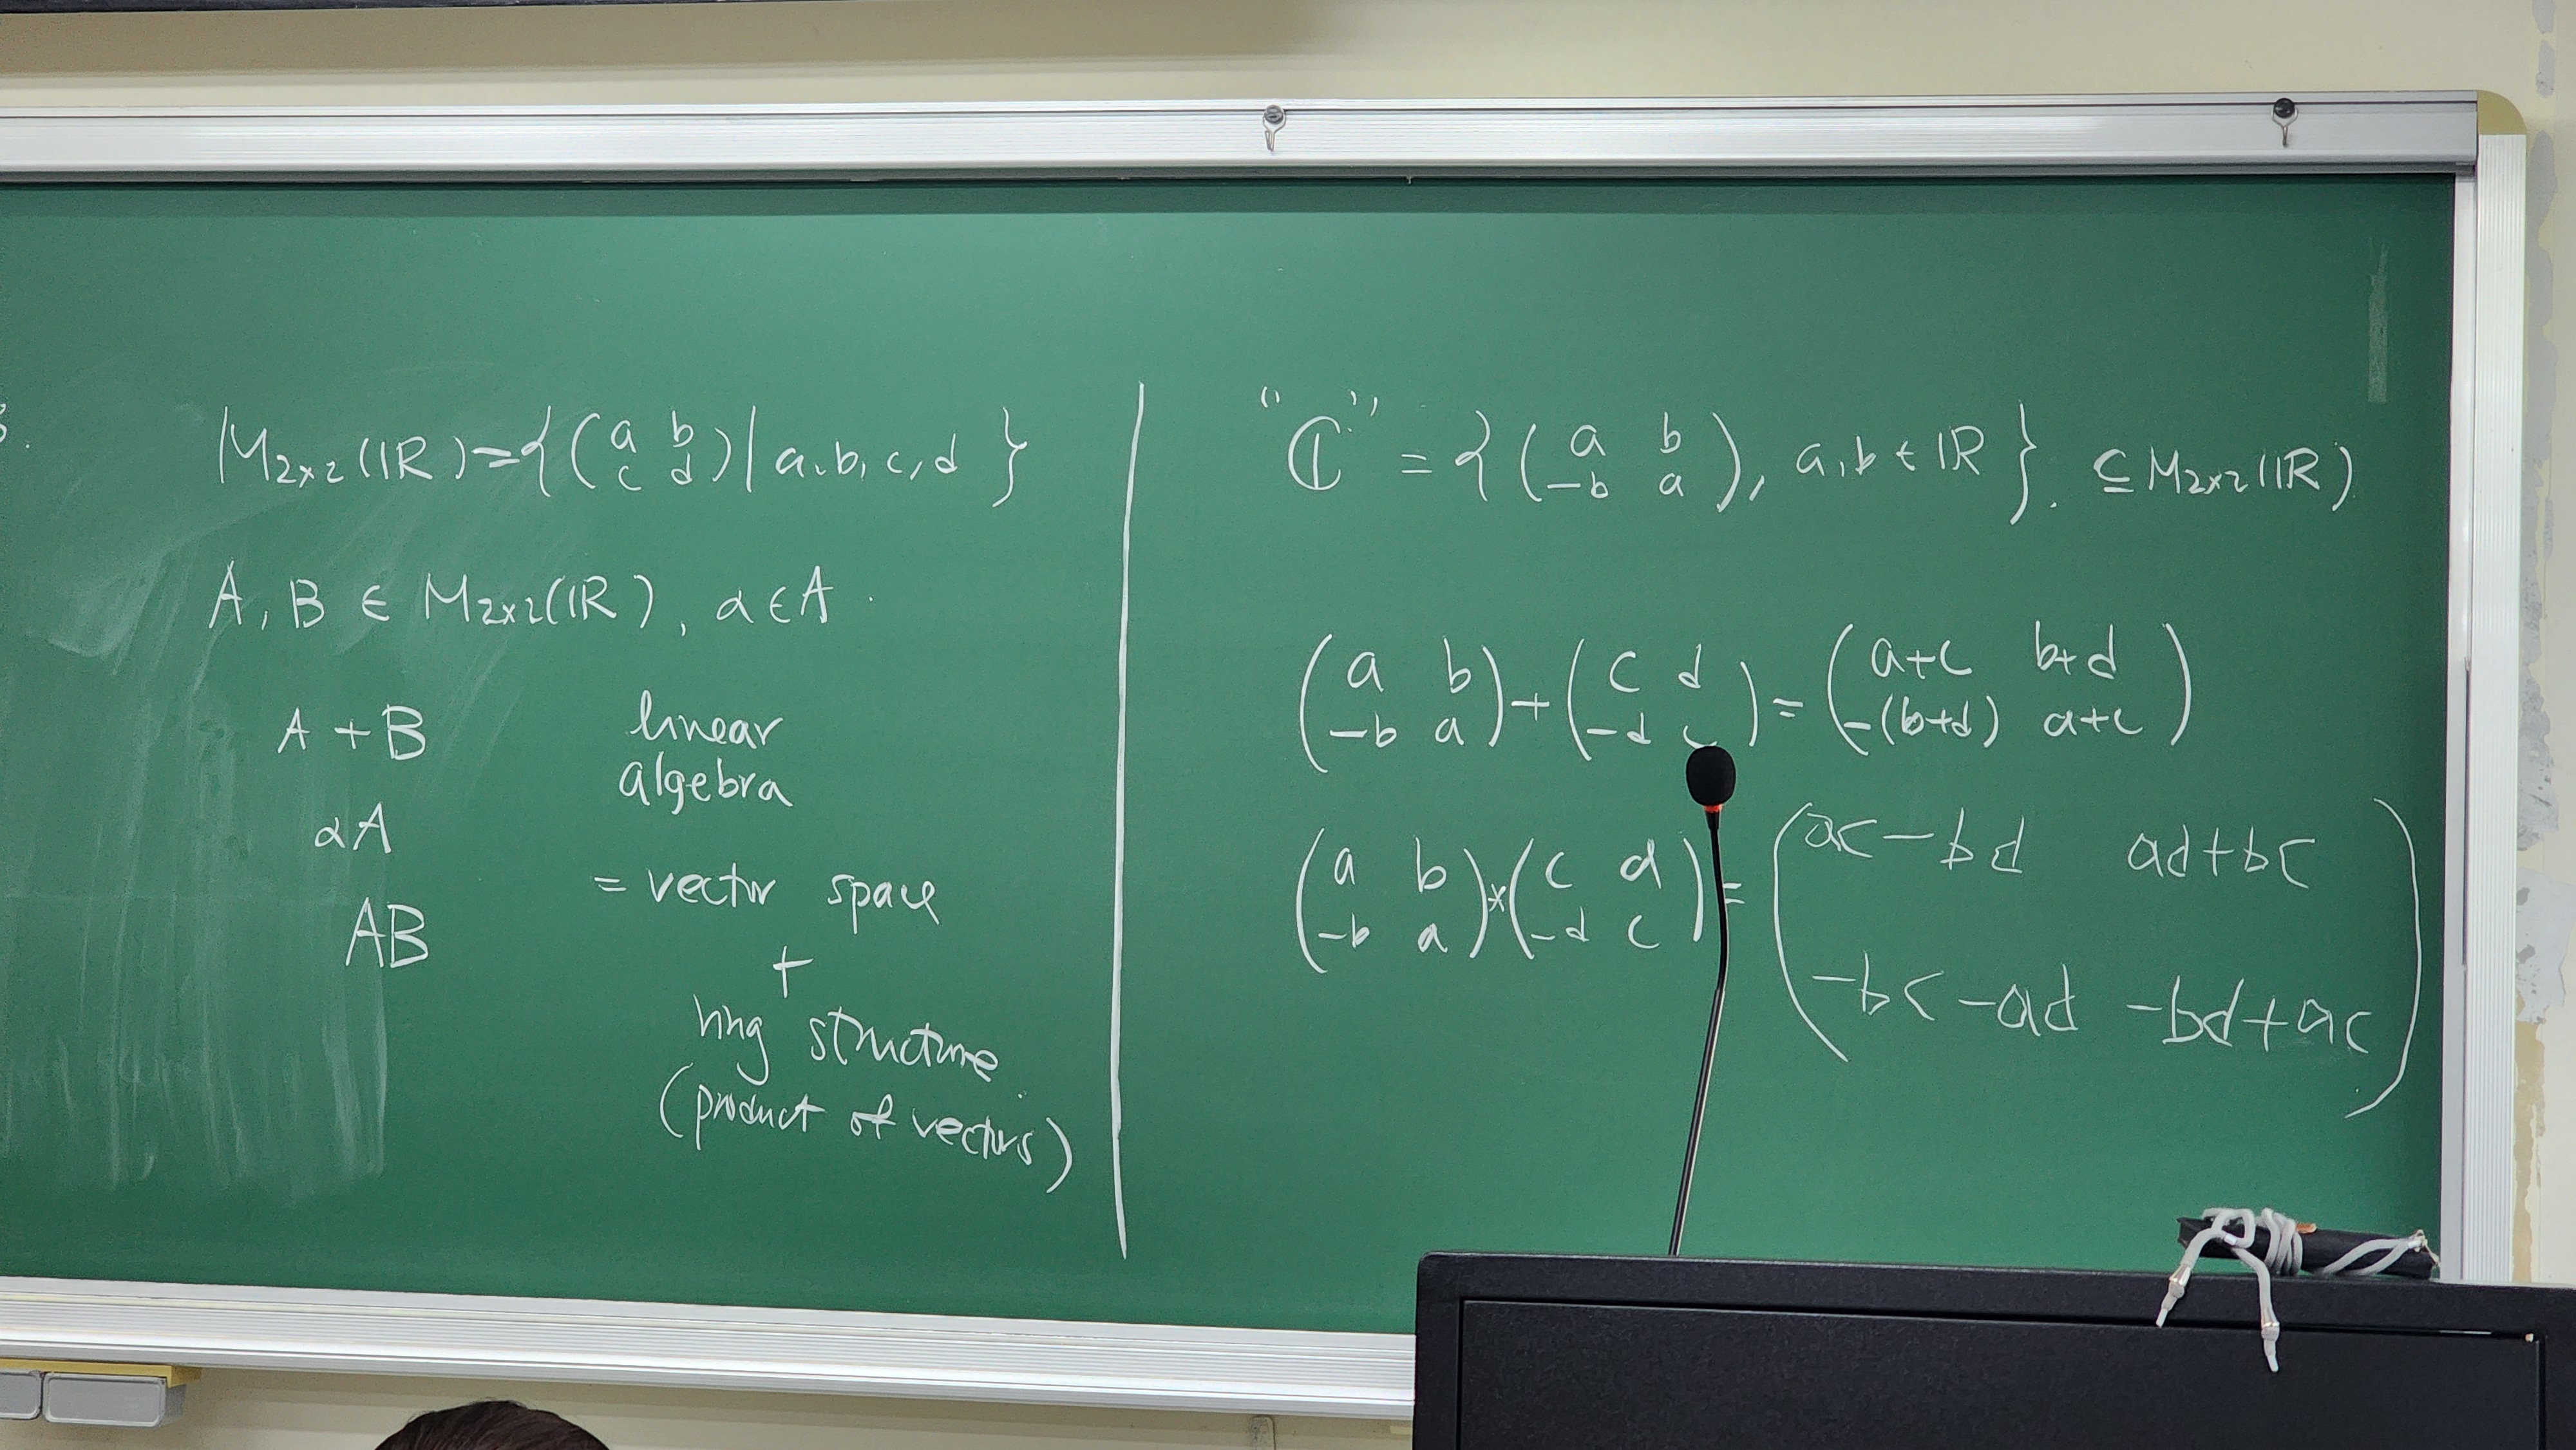 M₂ₓ₂(ℝ)={(a b c d)| a,b,c,d }
A, B ∈ M₂ₓ₂(ℝ), α∈A.
A+B
αA
AB
linear
algebra
= vector space
+
ring structure
(product of vectors)
"ℂ" = {(a b -b a), a,b∈ℝ}. ⊆ M₂ₓ₂(ℝ)
(a b -b a)+(c d -d c)=(a+c b+d -(b+d) a+c)
(a b -b a)*(c d -d c)=(ac-bd ad+bc -bc-ad -bd+ac)